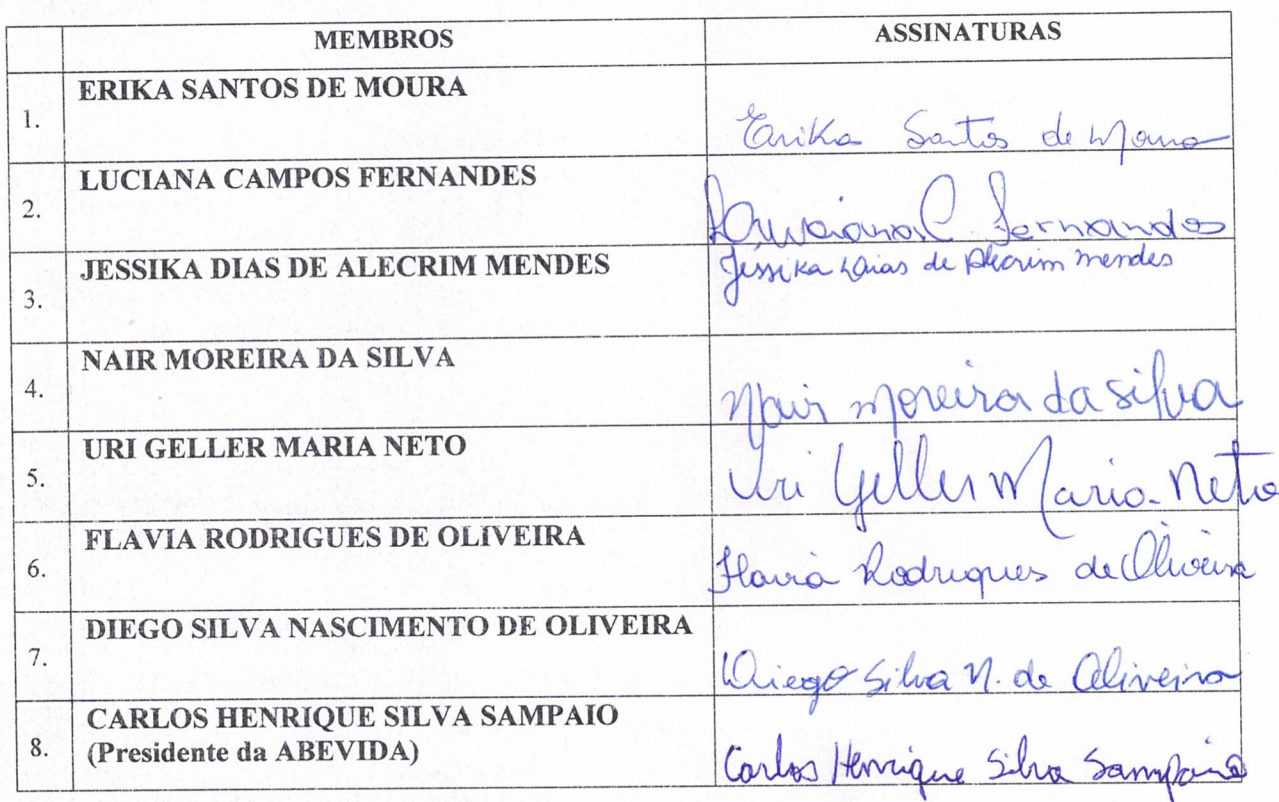 MEMBROS ASSINATURAS
1. ERIKA SANTOS DE MOURA
Erika Santos de Moura
2. LUCIANA CAMPOS FERNANDES
Luciana C Fernandes
3. JESSIKA DIAS DE ALECRIM MENDES
Jessika Dias de Alecrim mendes
4. NAIR MOREIRA DA SILVA
Nair moreira da silva
5. URI GELLER MARIA NETO
Uri Geller Maria Neto
6. FLAVIA RODRIGUES DE OLIVEIRA
Flavia Rodrigues de Oliveira
7. DIEGO SILVA NASCIMENTO DE OLIVEIRA
Diego Silva N. de Oliveira
8. CARLOS HENRIQUE SILVA SAMPAIO
(Presidente da ABEVIDA)
Carlos Henrique Silva Sampaio